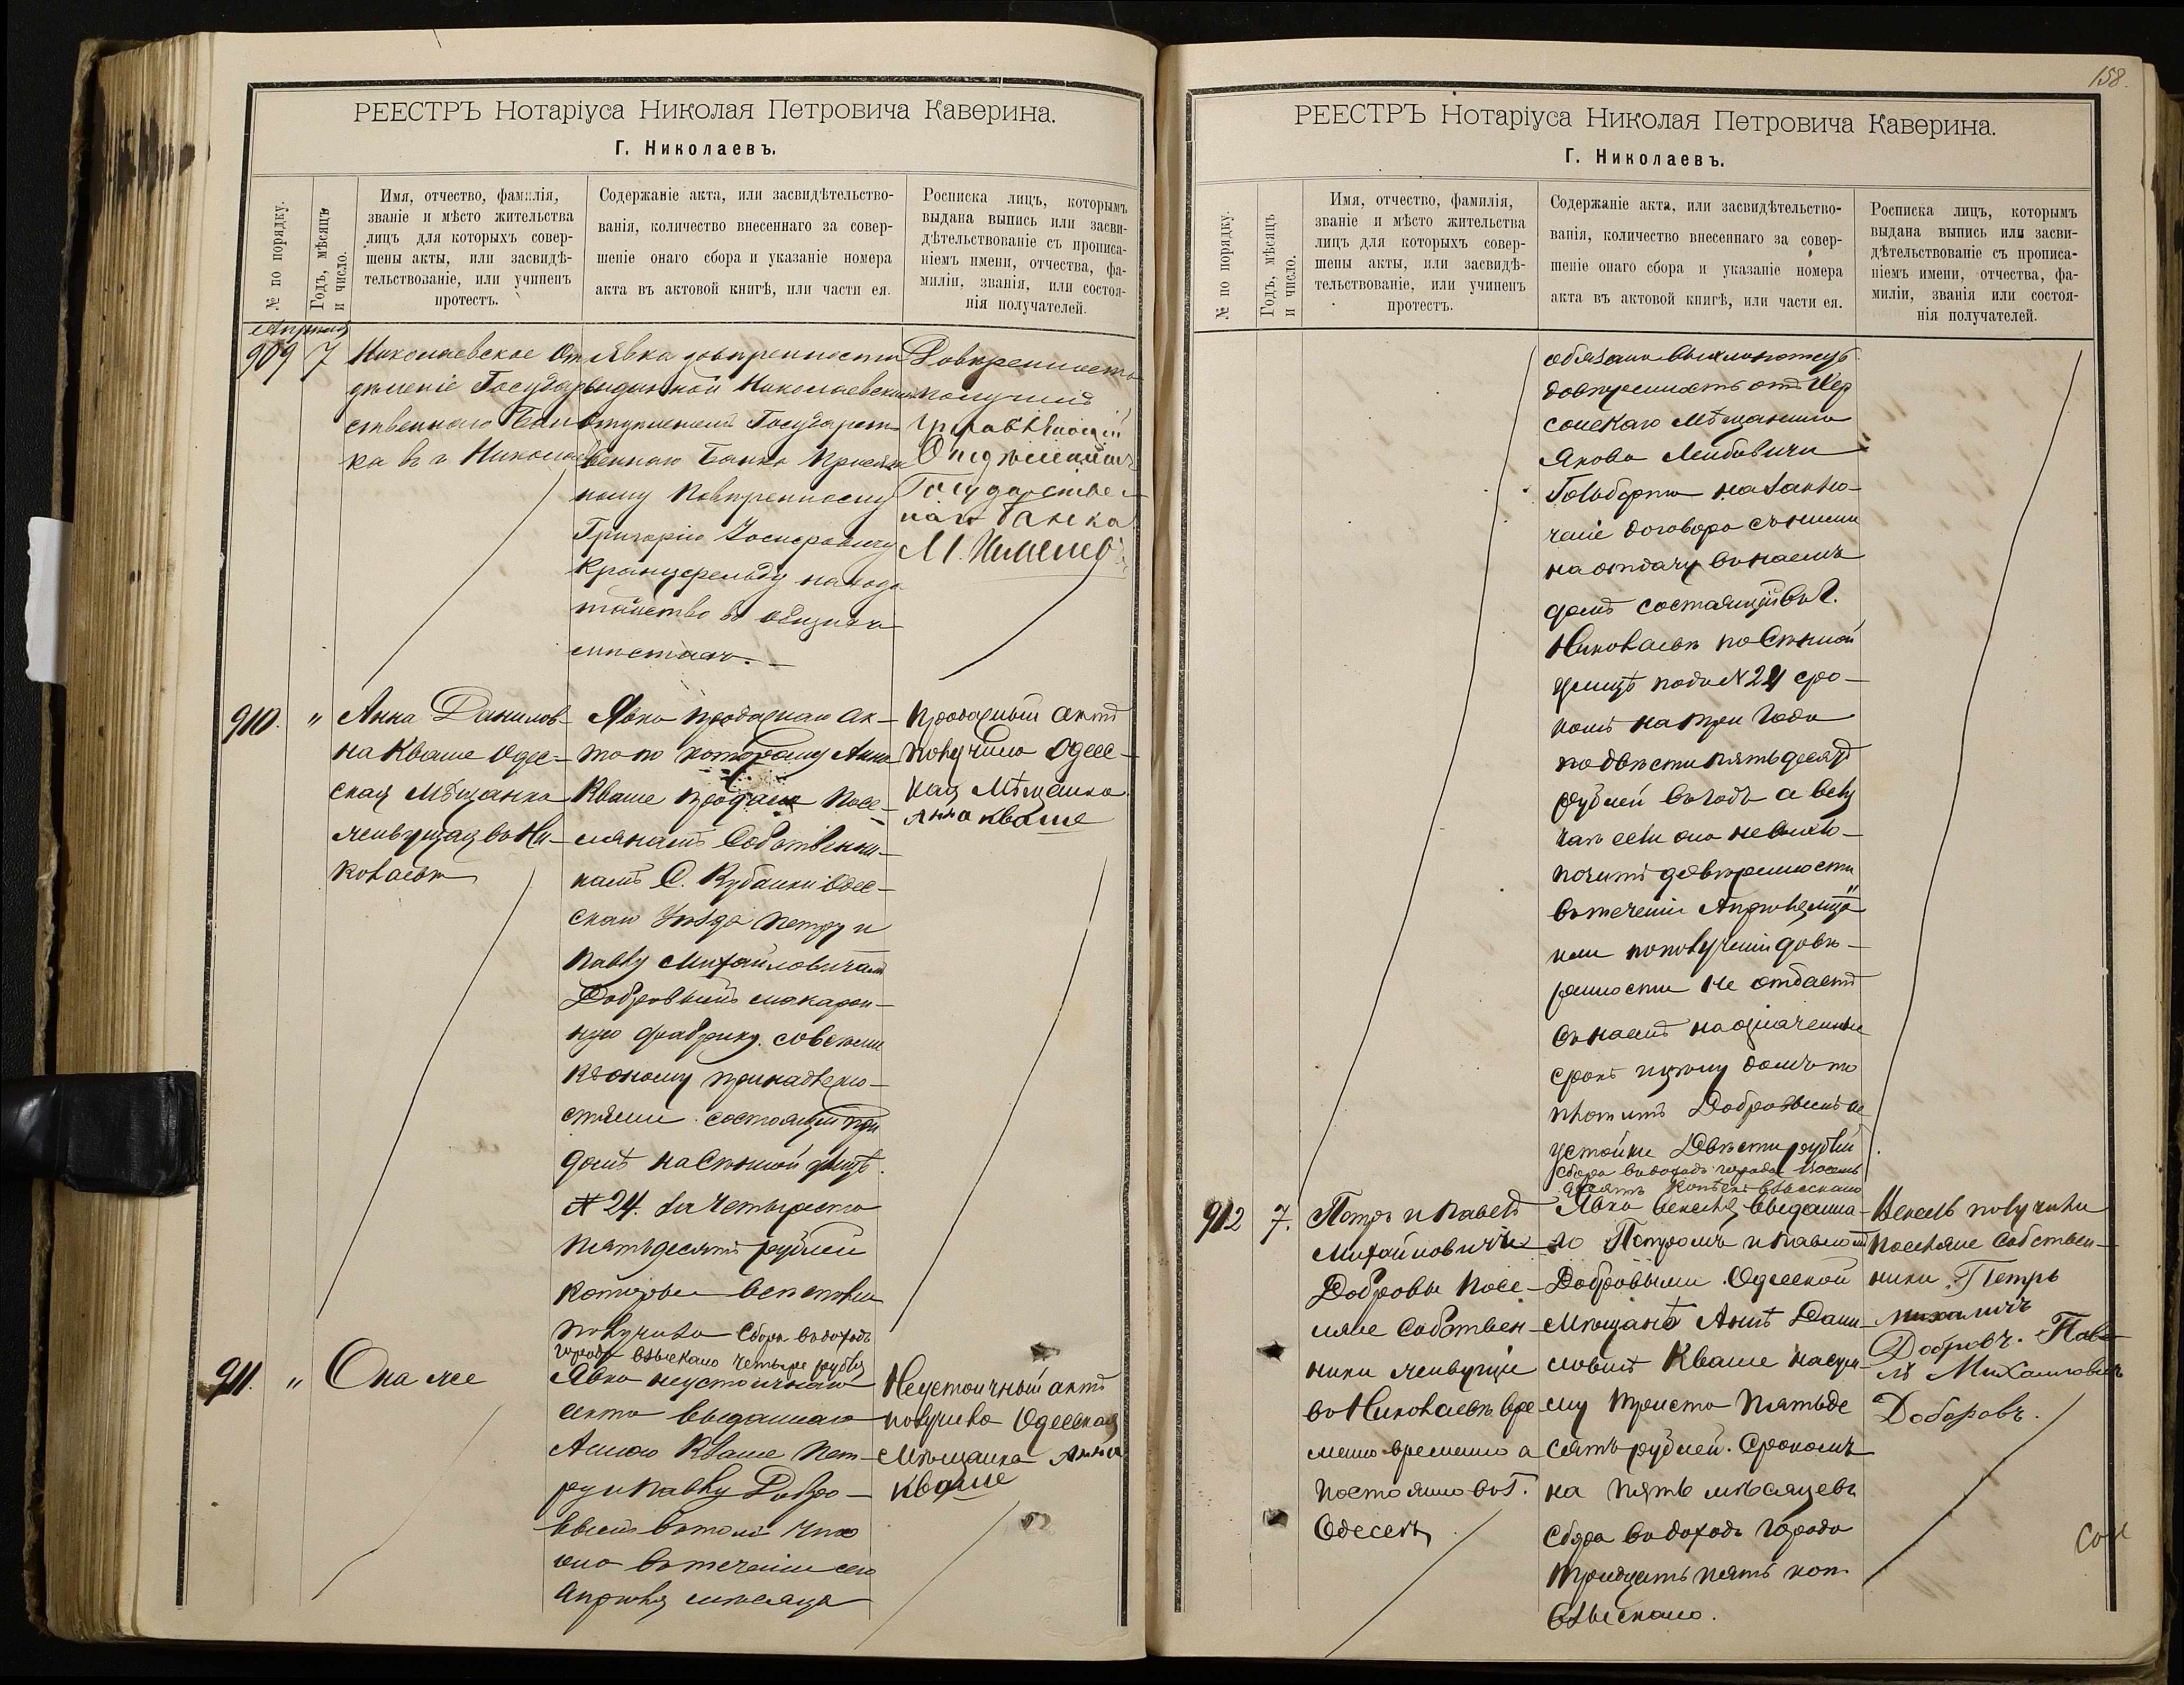 РЕЕСТРЪ Нотаріуса Николая Петровича Каверина.
Г. Николаевъ.
№ по порядку.
Годъ, мѣсяцъ
и число.
Имя, отчество, фамилія,
званіе и мѣсто жительства
лицъ для которыхъ совер-
шены акты, или засвидѣ-
тельствованіе, или учиненъ
протестъ.
Содержаніе акта, или засвидѣтельство-
ванія, количество внесеннаго за совер-
шеніе онаго сбора и указаніе номера
акта въ актовой книгѣ, или части ея.
Росписка лицъ, которымъ
выдана выпись или засви-
дѣтельствованіе съ прописа-
ніемъ имени, отчества, фа-
миліи, званія, или состоя-
нія получателей.
909 7
Николаевское От
дѣленіе Государ
ственнаго Бан
ка въ г. Никола
Явка довѣренности
выданной Николаевским
отдѣленіемъ Государст
веннаго Банка Присяж
ному Повѣренному
Григорію Іосифовичу
Кранцфельду на хода
тайство въ общих
мѣстахъ.
Довѣренность
получилъ
Управляющій
Отдѣленіемъ
Государствен
наго Банка
910. "
Анна Данилов-
на Кваше Одес-
ская Мѣщанка
живущая въ Ни-
колаевѣ
Явка продажнаго ак-
та по которому Анна
Кваше продала Посе-
лянамъ Собственни-
камъ С. Кубанки Одес-
скаго Уѣзда Петру и
Павлу Михайловичамъ
Добровымъ макарон-
ную фабрику со всеми
къ оному принадлежно-
стями состоящей при
домѣ на Сѣнной улицѣ
№ 24. за четыреста
пятьдесятъ рублей
которые всѣ сполна
получила Сбора въ доходъ
города взыскано четыре рубля
Продажный актъ
получила Одес-
кая Мѣщанка
Анна Кваше
911. "
Она же
Явка неустоичнаго
акта выданнаго
Анною Кваше Пет-
ру и Павлу Добро-
вымъ въ томъ что
она въ теченіи сего
Апрѣля мѣсяца
Неустоичный актъ
получила Одесская
Мѣщанка Анна
Кваше
158.
РЕЕСТРЪ Нотаріуса Николая Петровича Каверина.
Г. Николаевъ.
№ по порядку.
Годъ, мѣсяцъ
и число.
Имя, отчество, фамилія,
званіе и мѣсто жительства
лицъ для которыхъ совер-
шены акты, или засвидѣ-
тельствованіе, или учиненъ
протестъ.
Содержаніе акта, или засвидѣтельство-
ванія, количество внесеннаго за совер-
шеніе онаго сбора и указаніе номера
акта въ актовой книгѣ, или части ея.
Росписка лицъ, которымъ
выдана выпись или засви-
дѣтельствованіе съ прописа-
ніемъ имени, отчества, фа-
миліи, званія или состоя-
нія получателей.
обязана
довѣренность отъ Хер
сонскаго Мѣщанина
Якова Лейбовича
на заклю-
чаніе договора съ ними
на отдачу въ наемъ
домъ состоящій въ Г.
Николаевѣ по Сѣнной
улицѣ подъ № 24 сро-
комъ на три года
по двѣсти пятьдесятъ
рублей въ годъ а въ слу
чаѣ если она не
довѣренности
въ теченіи Апрѣля мца
или по полученіи довѣ-
ренности не отдастъ
въ наемъ на означенный
срокъ домъ то
платитъ Добровымъ не
устойки Двѣсти рублей
Сбора въ доходъ города восемь
десятъ копѣекъ взыскано
912 7.
Петръ и Павелъ
Михайловичи
Добровы Посе-
ляне Собствен-
ники живущіе
въ Николаевѣ вре
менно временно а
постоянно въ Г.
Одессѣ
Явка векселя выданна-
го Петромъ и Павломъ
Добровыми Одесской
Мѣщанкѣ Аннѣ Дани-
ловнѣ Кваше на сум-
му триста пятьде
сятъ рублей. Срокомъ
на пять мѣсяцевъ
Сбора въ доходъ города
тридцать пять коп.
взыскано.
Вексель получили
поселяне собствен-
ники. Петръ
Добровъ. Паве
лъ Михаиловичъ
Добровъ.